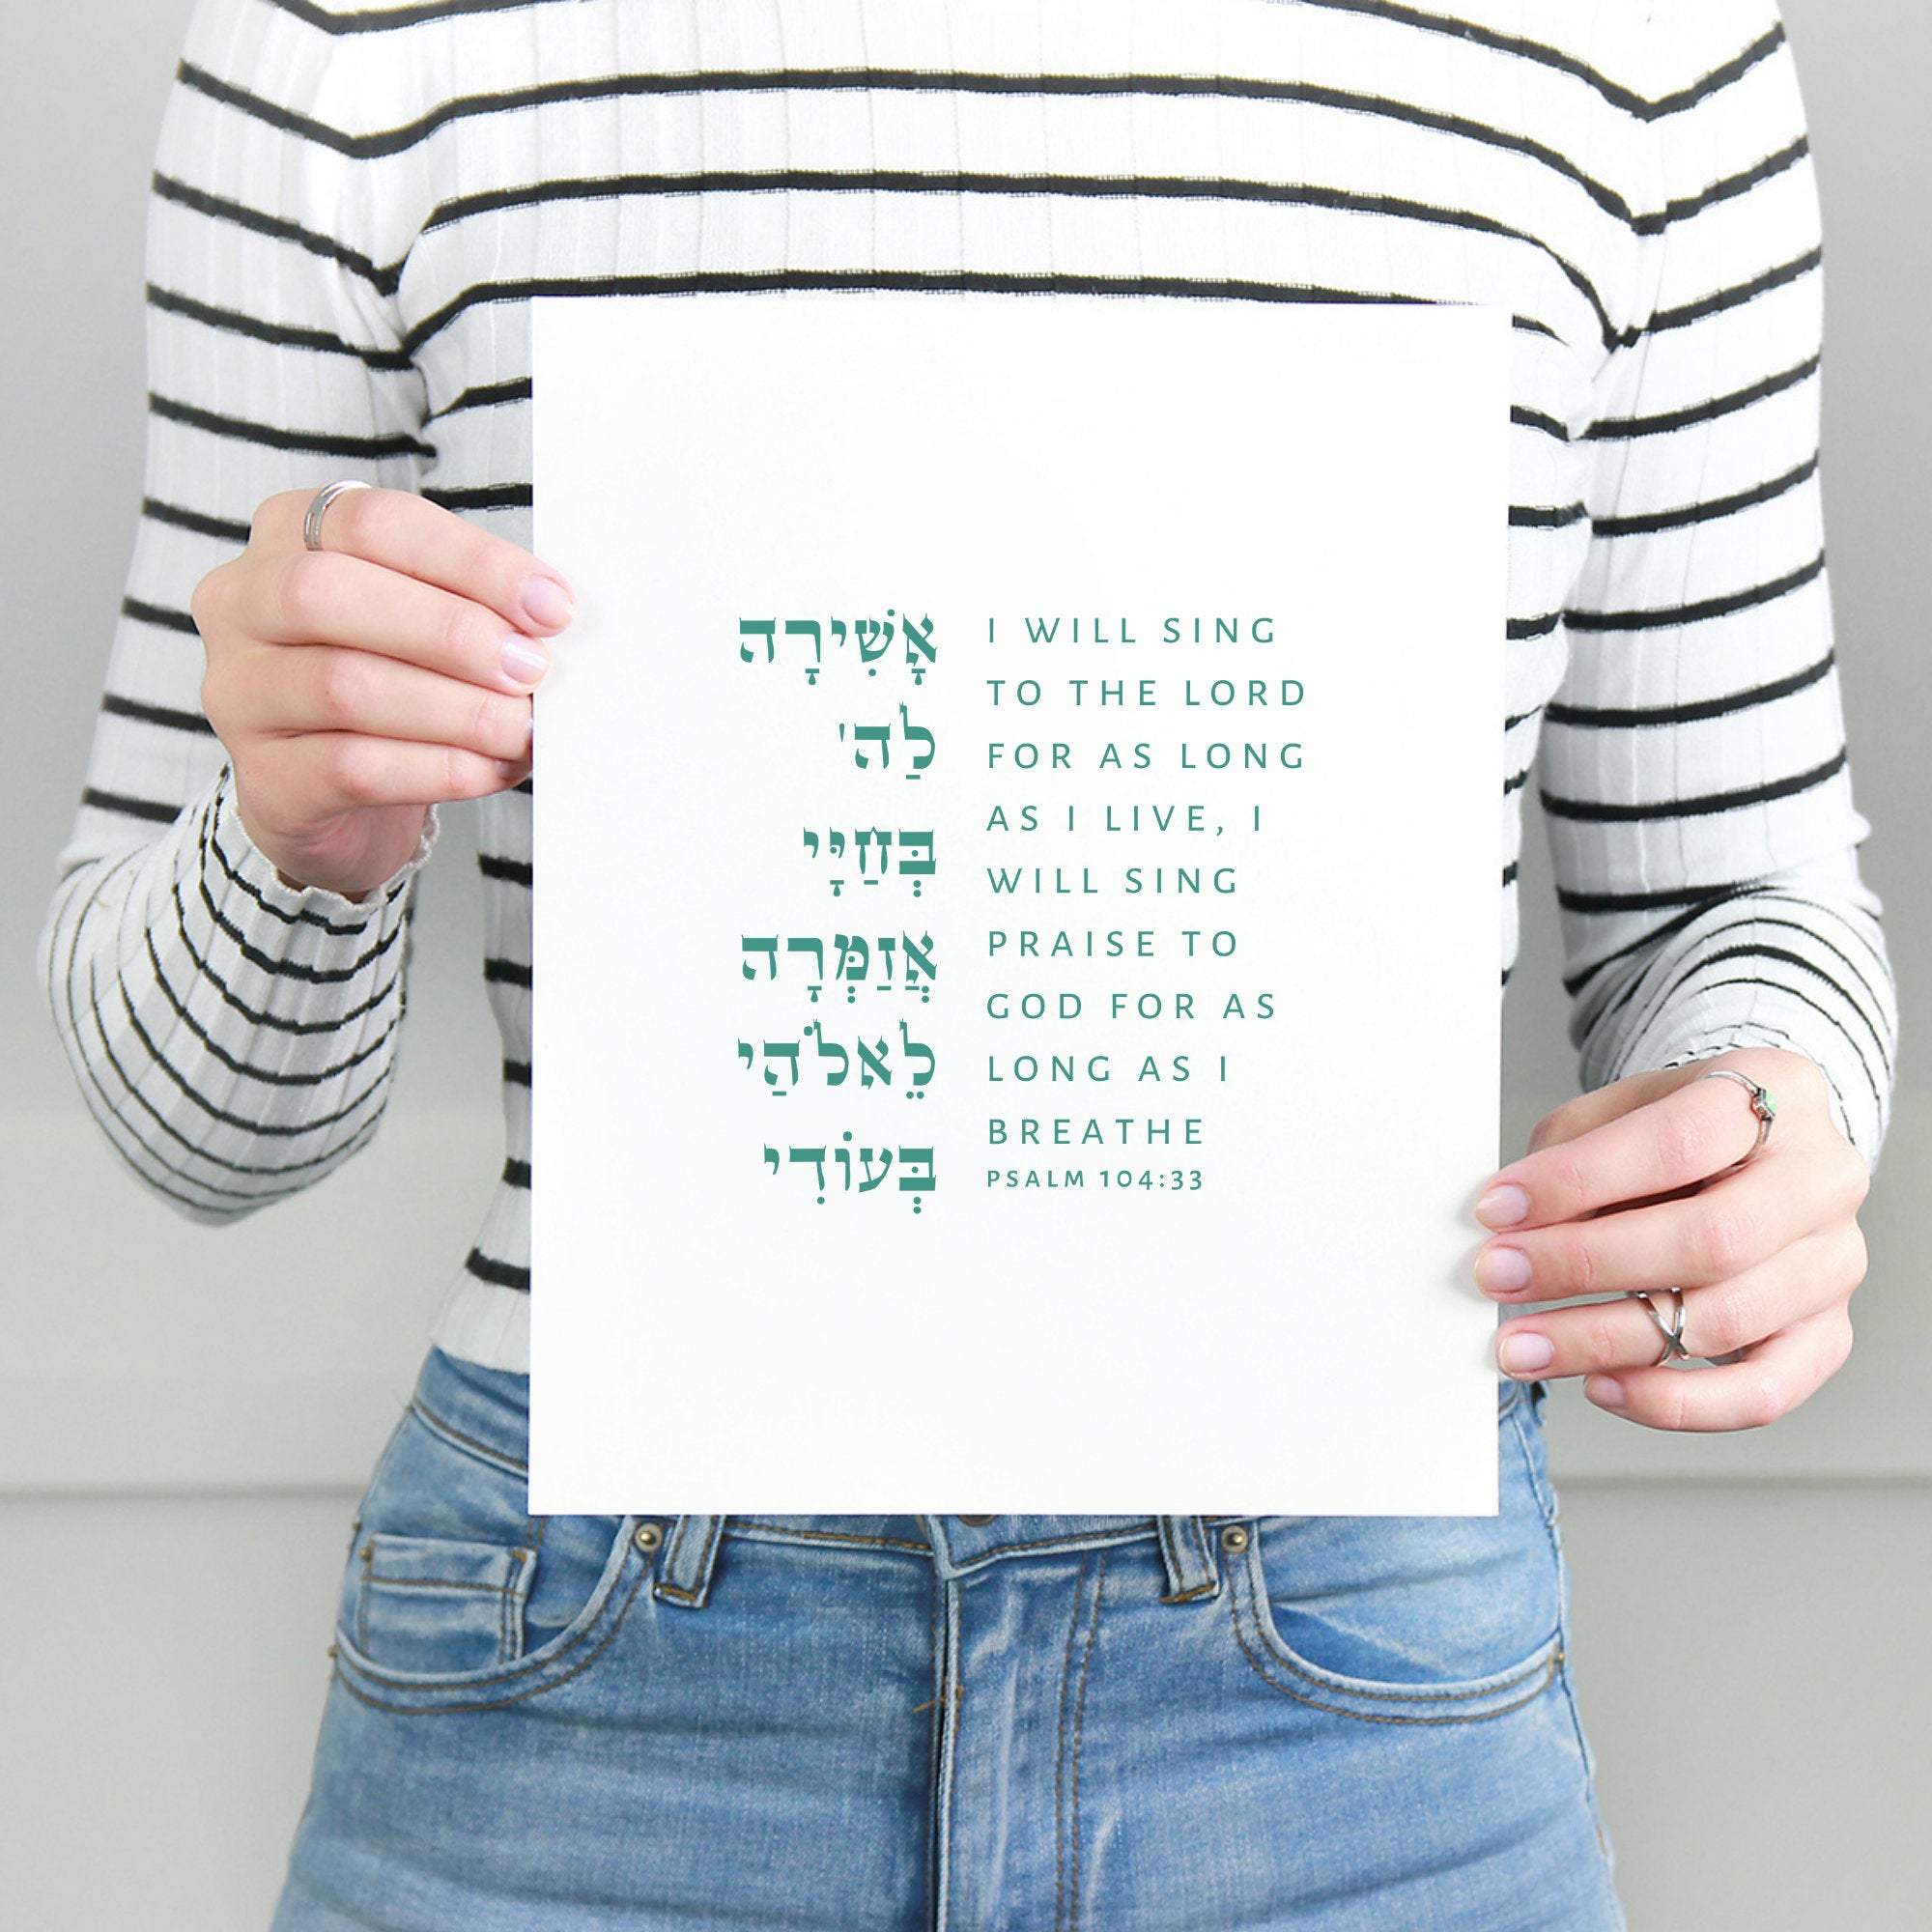 אָשִׁירָה
לַה'
בְּחַיָּי
אֲזַמְּרָה
לֵאלֹהַי
בְּעוֹדִי
I WILL SING
TO THE LORD
FOR AS LONG
AS I LIVE, I
WILL SING
PRAISE TO
GOD FOR AS
LONG AS I
BREATHE
PSALM 104:33